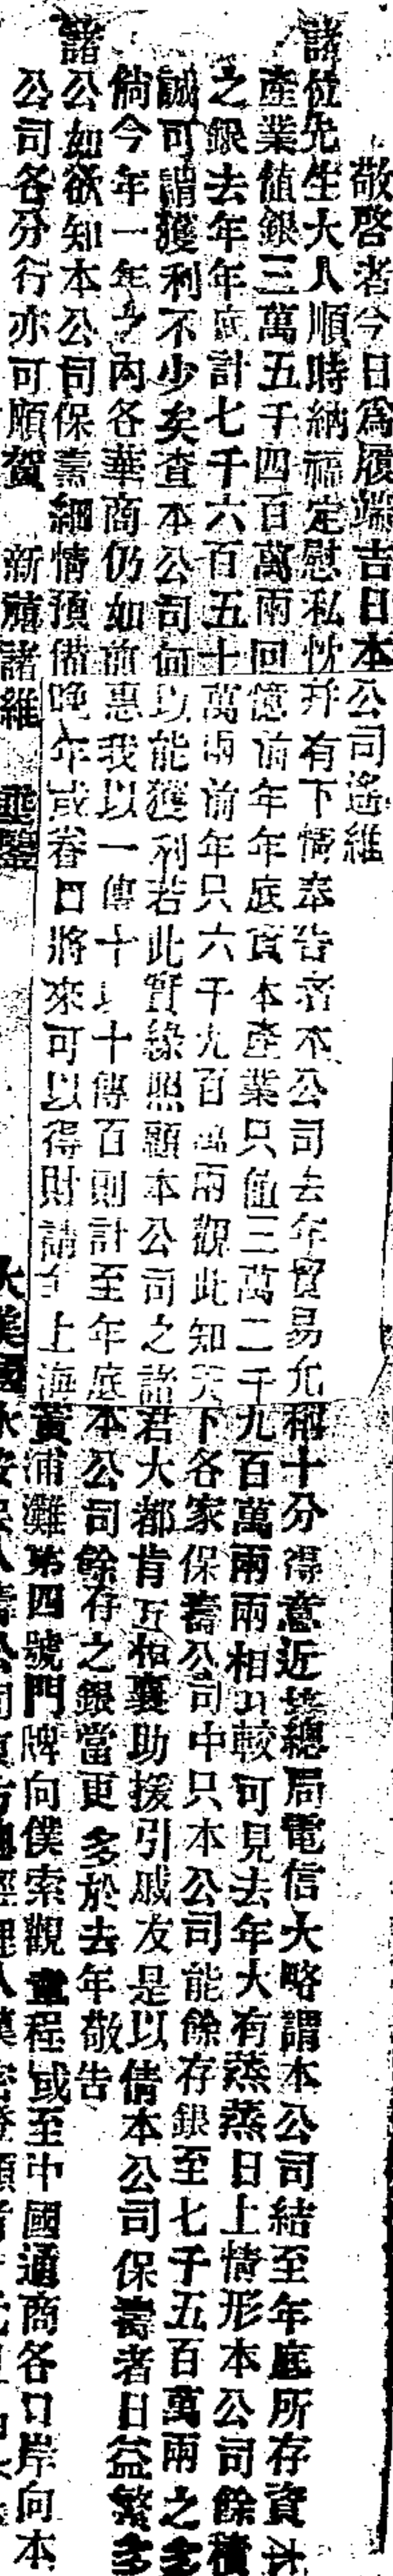 敬啓者今日為履端吉日本公司遙維
諸位先生大人順時納福定慰私忱并有下情奉告者本公司去年貿易允稱十分得意近接總局電信大略謂本公司結至年底所存資本
產業值銀三萬五千四百萬兩回憶前年年底資本產業只值三萬二千九百萬兩兩相比較可見去年大有蒸蒸日上情形本公司餘積
之銀去年年底計七千六百五十萬兩前年只六千九百萬兩觀此知天下各家保壽公司中只本公司能餘存銀至七千五百萬兩之多
誠可謂獲利不少矣查本公司何以能獲利若此實緣照顧本公司之諸君大都肯互相襄助援引戚友是以倩本公司保壽者日益繁多
倘今年一年之內各華商仍如前惠我以一傳十以十傳百則計至年底本公司餘存之銀當更多於去年敬告
諸公如欲知本公司保壽細情預備晚年或眷口將來可以得財請至上海黃浦灘第四號門牌向僕索觀章程或至中國通商各口岸向本
公司各分行亦可順賀 新禧諸維 垂鑒 大美國永安